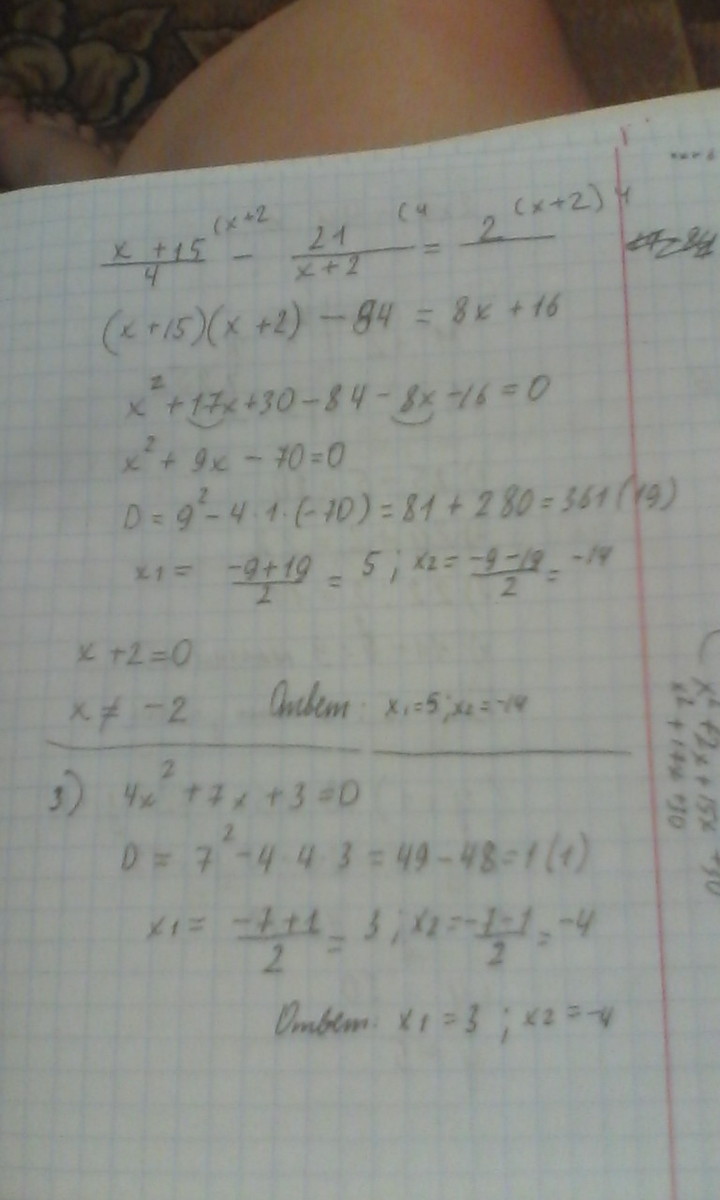 x + 15 (x+2 / 4 − 21 (4 / x+2 = 2 (x+2) 4
(x+15)(x+2) − 84 = 8x + 16
x² + 17x + 30 − 84 − 8x − 16 = 0
x² + 9x − 70 = 0
D = 9² − 4 · 1 · (−70) = 81 + 280 = 361 (19)
x1 = −9+19 / 2 = 5 ; x2 = −9−19 / 2 = −14
x + 2 = 0
x ≠ −2 Ответ: x1=5 ; x2 = −14
3) 4x² + 7x + 3 = 0
D = 7² − 4 · 4 · 3 = 49 − 48 = 1 (1)
x1 = −7+1 / 2 = 3 ; x2 = −7−1 / 2 = −4
Ответ: x1 = 3 ; x2 = −4
x² + 2x + 15x + 30
x² + 17x + 30